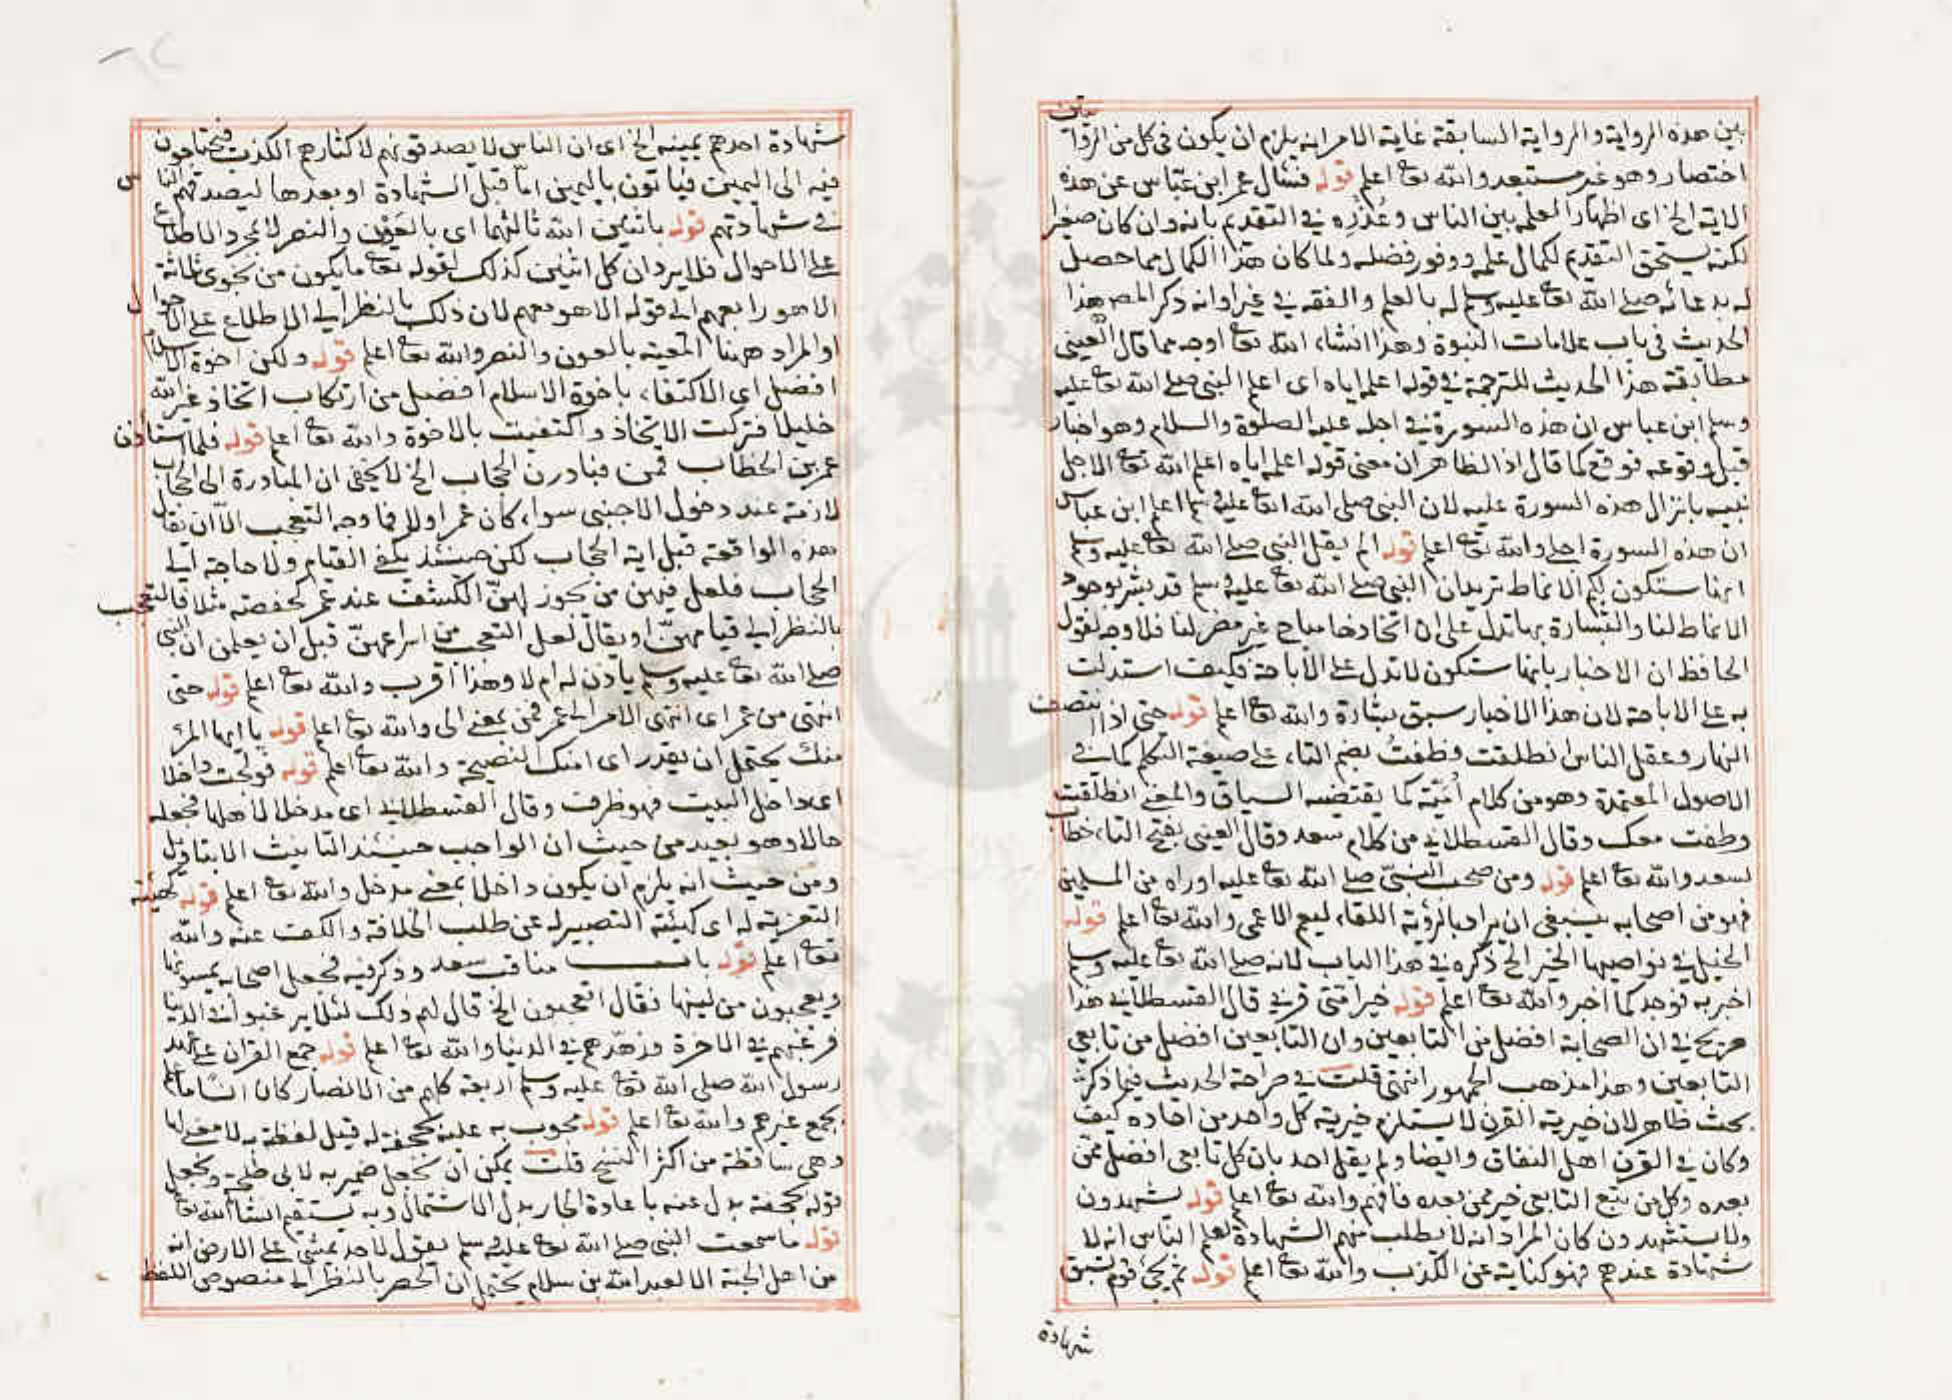 بين هذه الرواية والرواية السابقة غاية الامر انه يلزم ان يكون في كل من الروايتين
اختصار وهو غير مستبعد والله تعا اعلم قوله فسأل عمر ابن عباس عن هذه
الاية الخ اى اظهارا لعلمه بين الناس وعُذرِه في التقديم بانه وان كان صغيرا
لكنه يستحق التقديم لكمال علمه ووفور فضله ولما كان هذا الكمال مما حصل
له بدعائه صلى الله تعا عليه وسلم له بالعلم والفقه في غير اوانه ذكر المص هذا
الحديث في باب علامات النبوة وهذا انشاء الله تعا اوجه مما قال العينى
مطابقة هذا الحديث للترجمة في قوله اعلمه اياه اى اعلم النبى صلى الله تعا عليه
وسلم ابن عباس ان هذه السورة في اجله عليه الصلوة والسلام وهو اخبار
قبل وقوعه فوقع كما قال اذ الظاهر ان معنى قوله اعلمه اياه اعلم الله تعا الاجل
نبيه بانزال هذه السورة عليه لان النبى صلى الله تعا عليه وسلم اعلم ابن عباس
ان هذه السورة اجله والله تعا اعلم قوله الم يقل النبى صلى الله تعا عليه وسلم
انها ستكون لكم الانماط تريد ان النبى صلى الله تعا عليه وسلم قد بشر بوجود
الانماط لنا والبشارة بها تدل على ان اتخاذها مباح غير مضر لنا فلا وجه لقول
الحافظ ان الاخبار بانها ستكون لا تدل على الاباحة فكيف استدلت
به على الاباحة لان هذا الاخبار سبق بشارة والله تعا اعلم قوله حتى اذا انتصف
النهار وغفل الناس انطلقت وطفتُ بضم التاء على صيغة التكلم كما في
الاصول المعتمدة وهو من كلام أميّة كما يقتضيه السياق والمعنى انطلقت
وطفت معك وقال القسطلانى من كلام سعد وقال العينى بفتح التاء خطاب
لسعد والله تعا اعلم قوله ومن صحب النبىّ صلى الله تعا عليه او راه من المسلمين
فهو من اصحابه ينبغى ان يراد بالرؤية اللقاء ليعم الاعمى والله تعا اعلم قوله
الخيل في نواصيها الخير الخ ذكره في هذا الباب لانه صلى الله تعا عليه وسلم
اخبر به فوجد كما اخبر والله تعا اعلم قوله خير امتى قرنى قال القسطلانى هذا
صريح في ان الصحابة افضل من التابعين وان التابعين افضل من تابعى
التابعين وهذا مذهب الجمهور انتهى قلت في صراحة الحديث فيما ذكره
بحث ظاهر لان خيرية القرن لا يستلزم خيرية كل واحد من احاده كيف
وكان في القرن اهل النفاق وايضا ولم يقل احد بان كل تابعى افضل ممن
بعده وكل من تبع التابعى خير ممن بعده فافهم والله تعا اعلم قوله يشهدون
ولا يستشهدون كان المراد انه لا يطلب منهم الشهادة لعلم الناس انه لا
شهادة عندهم فهو كناية عن الكذب والله تعا اعلم قوله ثم يجئ قوم تسبق
شهادة
شهادة احدهم يمينه الخ اى ان الناس لا يصدقونهم لاكثارهم الكذب فيحتاجون
فيه الى اليمين فياتون باليمين امّا قبل الشهادة او بعدها ليصدقهم الناس
في شهادتهم قوله باثنين الله ثالثهما اى بالعَوْن والنصر لا بمجرد الاطلاع
على الاحوال فلا يرد ان كل اثنين كذلك لقوله تعا ما يكون من نجوى ثلثة
الا هو رابعهم الى قوله الا هو معهم لان ذلك بالنظر الى الاطلاع على الاحوال
او المراد ههنا المعية بالعون والنصر والله تعا اعلم قوله ولكن اخوة الاسلام
افضل اى الاكتفاء باخوة الاسلام افضل من ارتكاب اتخاذ غير الله
خليلا فتركت الاتخاذ واكتفيت بالاخوة والله تعا اعلم قوله فلما استأذن
عمر بن الخطاب قمن فبادرن الحجاب الخ لا يخفى ان المبادرة الى الحجاب
لازمة عند دخول الاجنبى سواء كان عمر اولا فما وجه التعجب الا ان يقال
هذه الواقعة قبل اية الحجاب لكن حينئذ يكفى القيام ولا حاجة الى
الحجاب فلعل فيهن من يجوز لهنّ الكشف عند عمر كحفصة مثلا فالتعجب
بالنظر الى قيامهنّ او يقال لعل التعجب من اسراعهنّ قبل ان يعلمن ان النبى
صلى الله تعا عليه وسلم ياذن له ام لا وهذا اقرب والله تعا اعلم قوله حتى
انتهى من عمر اى انتهى الامر الى عمر فمن بمعنى الى والله تعا اعلم قوله يا ايها المرء
منك يحتمل ان يقدر اى امنك النصيحة والله تعا اعلم قوله فولجت داخلا
اى داخل البيت فهو ظرف وقال القسطلانى اى مدخلا لاهلها فجعله
حالا وهو بعيد من حيث ان الواجب حينئذ التانيث الا بتاويل
ومن حيث انه يلزم ان يكون داخلا بمعنى مدخل والله تعا اعلم قوله كهيئة
التعزية له اى كهيئة التصبير له عن طلب الخلافة والكف عنه والله
تعا اعلم قوله باب مناقب سعد وذكر فيه فجعل اصحابه يمسونها
ويعجبون من لينها فقال اتعجبون الخ قال لهم ذلك لئلا يرغبوا في الدنيا
فرغبهم في الاخرة وزهّدهم في الدنيا والله تعا اعلم قوله جمع القران على عهد
رسول الله صلى الله تعا عليه وسلم اربعة كلهم من الانصار
بجمع غيرهم والله تعا اعلم قوله مجوب به عليه بحجفة له قيل لفظة به لا معنى لها
وهى ساقطة من اكثر النسخ قلت يمكن ان نجعل ضمير به لابى طلحة ونجعل
قوله بحجفة بدل عنه باعادة الجار بدل الاشتمال وبه يستقيم انشا الله تعا
قوله ما سمعت النبى صلى الله تعا عليه وسلم يقول لاحد يمشى على الارض انه
من اهل الجنة الا لعبد الله بن سلام يحتمل ان الحصر بالنظر الى منصوص اللفظ